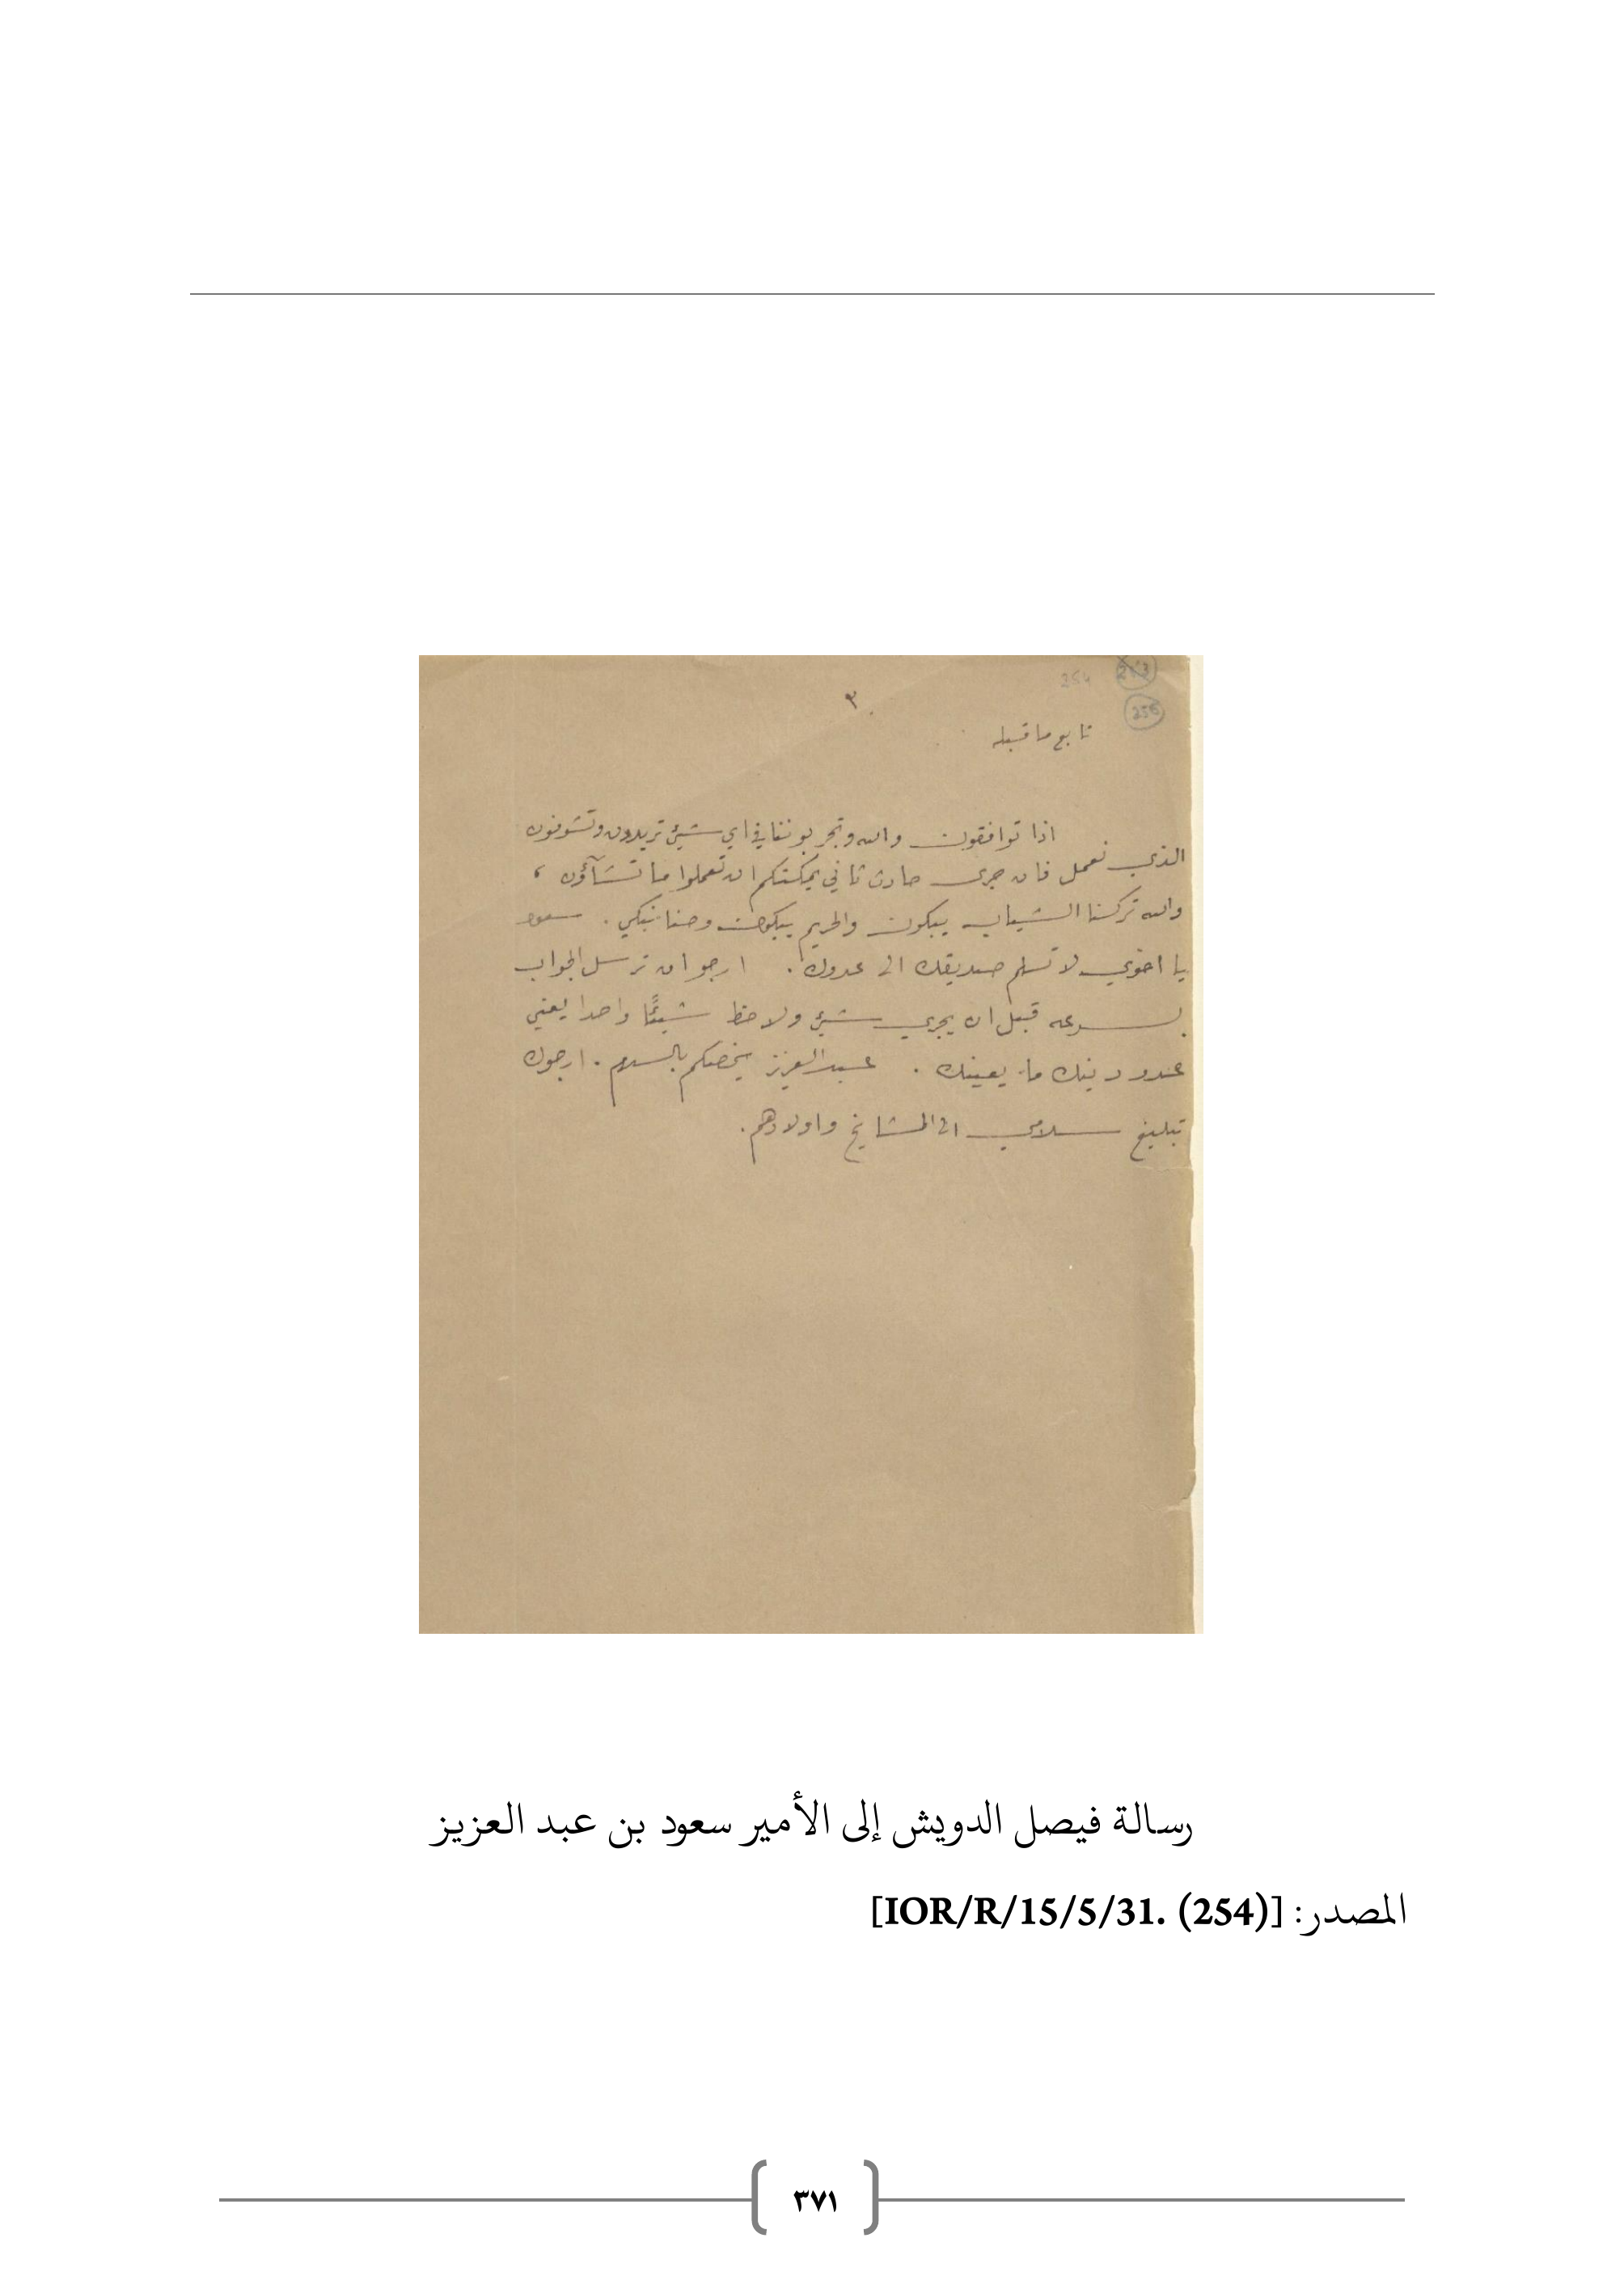 254
263
256
٣
تابع ما قبله
اذا توافقون والله وتجربوننا في اي شيئ تريدون وتشوفون
الذي نعمل فان جرى حادث ثاني يمكنكم ان تعملوا ما تشآؤن ،
والله تركنا الشياب يبكون والحريم يبكون وحنا نبكي . سعود
يا اخوي لا تسلم صديقك الى عدوك . ارجو ان ترسل الجواب
بسرعه قبل ان يجري شيئ ولاحظ شيئًا واحدا يعني
عدو دينك ما يعينك . عبد العزيز يخصكم بالسلام . ارجوك
تبليغ سلامي الى المشايخ واولادهم .
رسالة فيصل الدويش إلى الأمير سعود بن عبد العزيز
المصدر: [IOR/R/15/5/31. (254)]
٣٧١